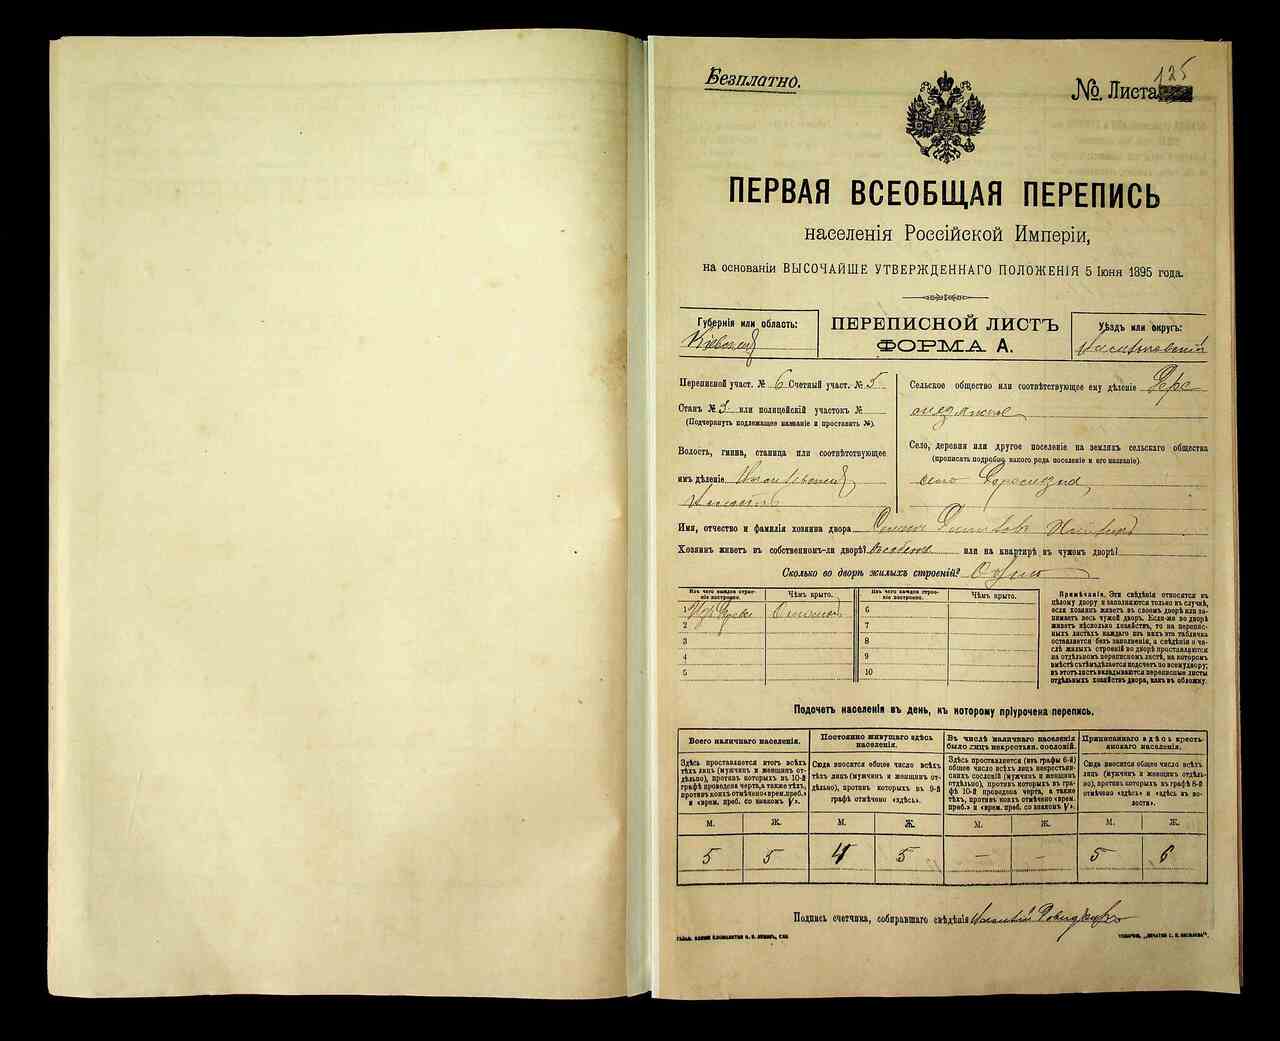 Безплатно.
№. Листа 125
ПЕРВАЯ ВСЕОБЩАЯ ПЕРЕПИСЬ
населенія Россійской Имперіи,
на основаніи ВЫСОЧАЙШЕ УТВЕРЖДЕННАГО ПОЛОЖЕНІЯ 5 Іюня 1895 года.
Губернія или область:
ПЕРЕПИСНОЙ ЛИСТЪ
ФОРМА А.
Уѣздъ или округъ:
Переписной участ. № 6 Счетный участ. № 5
Станъ № 3 или полицейскій участокъ №
(Подчеркнуть подлежащее названіе и проставить №).
Волость, гмина, станица или соотвѣтствующее
имъ дѣленіе
Сельское общество или соотвѣтствующее ему дѣленіе
Село, деревня или другое поселеніе на земляхъ сельскаго общества
(прописать подробно, какого рода поселеніе и его названіе).
село
Имя, отчество и фамилія хозяина двора
Хозяинъ живетъ въ собственномъ-ли дворѣ? или на квартирѣ въ чужомъ дворѣ?
Сколько во дворѣ жилыхъ строеній? Одно
Изъ чего каждое строеніе построено.
Чѣмъ крыто.
Изъ чего каждое строеніе построено.
Чѣмъ крыто.
1 Соломою
2
3
4
5
6
7
8
9
10
Примѣчанія. Эти свѣдѣнія относятся къ
цѣлому двору и заполняются только въ случаѣ,
если хозяинъ живетъ въ своемъ дворѣ или занимаетъ
весь чужой дворъ. Если-же во дворѣ
живетъ нѣсколько хозяйствъ, то на переписныхъ
листахъ каждаго изъ нихъ эта табличка
оставляется безъ заполненія, а свѣдѣнія о числѣ
жилыхъ строеній во дворѣ проставляются
на отдѣльномъ переписномъ листѣ, на которомъ
вмѣстѣ съ тѣмъ дѣлается подсчетъ по всему двору;
въ этотъ листъ вкладываются переписные листы
отдѣльныхъ хозяйствъ двора, какъ въ обложку.
Подсчетъ населенія въ день, къ которому пріурочена перепись.
Всего наличнаго населенія.
Здѣсь проставляется итогъ всѣхъ
тѣхъ лицъ (мужчинъ и женщинъ отдѣльно),
противъ которыхъ въ 10-й
графѣ проведена черта, а также тѣхъ,
противъ коихъ отмѣчено «врем. преб.»
и «врем. преб. со знакомъ V».
Постоянно живущаго здѣсь
населенія.
Сюда вносится общее число всѣхъ
тѣхъ лицъ (мужчинъ и женщинъ отдѣльно),
противъ которыхъ въ 9-й
графѣ отмѣчено «здѣсь».
Въ числѣ наличнаго населенія
было лицъ некрестьян. сословій.
Здѣсь проставляется (изъ графы 6-й)
общее число всѣхъ лицъ некрестьянскихъ
сословій (мужчинъ и женщинъ
отдѣльно), противъ которыхъ въ графѣ
10-й проведена черта, а также
тѣхъ, противъ коихъ отмѣчено «врем.
преб.» и «врем. преб. со знакомъ V».
Приписаннаго здѣсь крестьянскаго
населенія.
Сюда вносится общее число всѣхъ
лицъ (мужчинъ и женщинъ отдѣльно),
противъ которыхъ въ графѣ 8-й
отмѣчено «здѣсь» и «здѣсь въ волости».
М. Ж. М. Ж. М. Ж. М. Ж.
5 5 4 5 - - 5 6
Подпись счетчика, собиравшаго свѣдѣнія